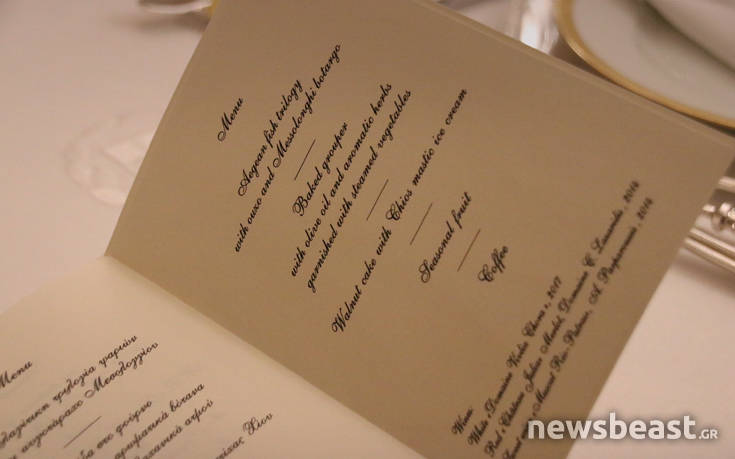 Menu
Aegean fish trilogy
with ouzo and Messolonghi botargo
Baked grouper
with olive oil and aromatic herbs
garnished with steamed vegetables
Walnut cake with Chios mastic ice cream
Seasonal fruit
Coffee
Wines:
White: Domaine 2017
Red: Château Julia Merlot, Domaine C. Lazaridi, 2014
Muscat Rio-Patras, A. Parparoussis, 2014
Menu
τριλογία ψαριών
αυγοτάραχο Μεσολογγίου
στο φούρνο
αρωματικά βότανα
ατμού
Χίου
newsbeast.GR